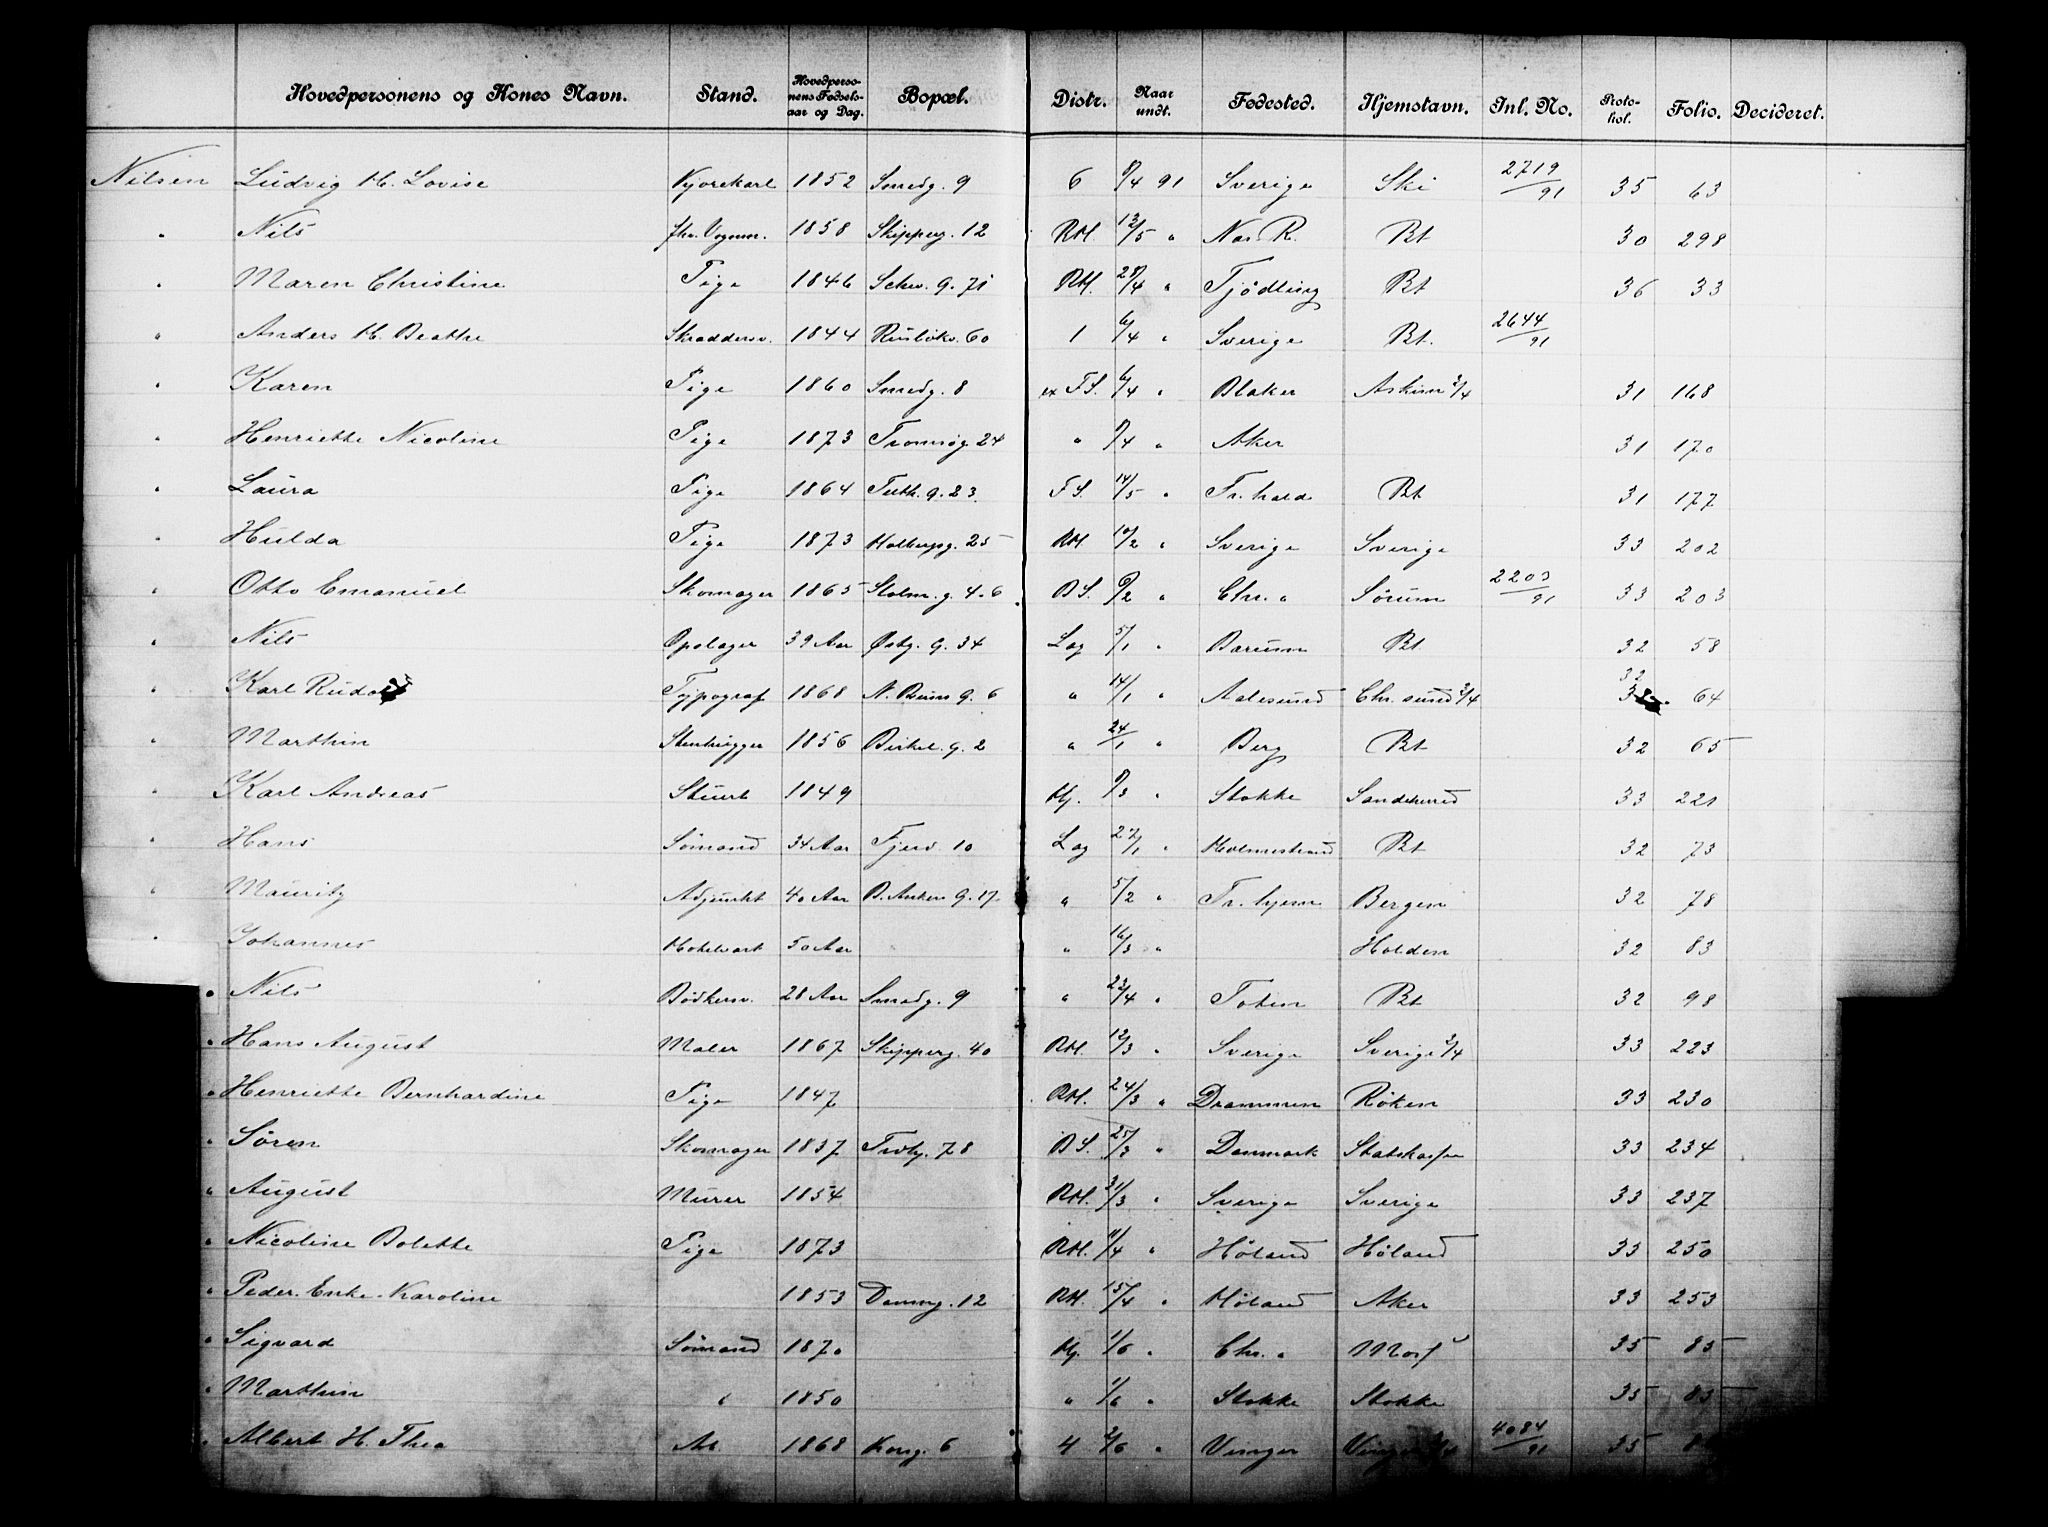 Hovedpersonens og Kones Navn. Stand. Hovedpersonens Fødselsaar og Dag. Bopæl. Distr. Naar undt. Fødested. Hjemstavn. Inl. No. Protokol. Folio. Decideret.
Nilsen Ludvig H. Lovise Kjørekarl 1852 Smedg. 9 6 8/4 91 Sverige Ski 2719/91 35 63
" Nils fhv. Vognm. 1858 Skipperg. 12 RH. 12/5 " Nas. R. Bt 30 298
" Maren Christine Pige 1846 Schw. g. 71 RH. 28/4 " Tjødling Bt 36 33
" Anders H. Beathe Skrædersv. 1844 Rusløkv. 60 1 6/4 " Sverige Bt. 2644/91
" Karen Pige 1860 Smedg. 8 ex FS. 6/4 " Blaker Askim 3/4 31 168
" Henriette Nicoline Pige 1873 Tromsøg. 24 " 8/4 " Aker 31 170
" Laura Pige 1864 Toth. g. 23. FS. 14/5 " Fr.hald Bt 31 177
" Hulda Pige 1873 Holbergsg. 25 RH 10/2 " Sverige Sverige 33 202
" Otto Emanuel Skomager 1865 Stolm. g. 4-6 BS. 9/2 " Chr. a Sørum 2203/91 33 203
" Nils Opslager 39 Aar Østg. g. 34 Lag 5/1 " Bærum Bt 32 58
" Karl Rudolf Typograf 1868 N. Brun g. 6 " 14/1 " Aalesund Chr. sund 3/4 32 64
" Marthin Stenhugger 1856 Birkel. g. 2 " 24/1 " Berg Bt 32 65
" Karl Andreas Stuert 1849 Hj. 9/3 " Stokke Sandeherred 33 221
" Hans Sømand 34 Aar Fjerd. 10 Lag 27/1 " Holmestrand Bt 32 73
" Mauritz Adjunkt 40 Aar B. Anker g. 17. " 5/2 " Tr. hjem Bergen 32 78
" Johannes Hotelvært 50 Aar " 16/3 " Holden 32 83
" Nils Bødkersv. 28 Aar Smedg. 9 " 22/4 " Toten Bt 32 98
" Hans August Maler 1867 Skipperg. 40 RH. 12/3 " Sverige Sverige 3/4 33 223
" Henriette Bernhardine Pige 1847 RH. 24/3 " Drammen Røken 33 230
" Søren Skomager 1837 Trdhj. 78 BS. 25/3 " Danmark Statskassen 33 234
" August Murer 1854 RH. 31/3 " Sverige Sverige 33 237
" Nicoline Bolette Pige 1873 RH. 11/4 " Høland Høland 33 250
" Peder. Enke-Karoline 1853 Dammg. 12 RH. 15/4 " Høland Aker 33 253
" Sigvard Sømand 1870 Hj. 1/6 " Chr. a Moss 35 85
" Marthin " 1850 " 1/6 " Stokke Stokke 35 85
" Albert H. Thea Ar 1868 Kong. 6 4 2/6 " Vinger Vinger 3/4 4084/91 35